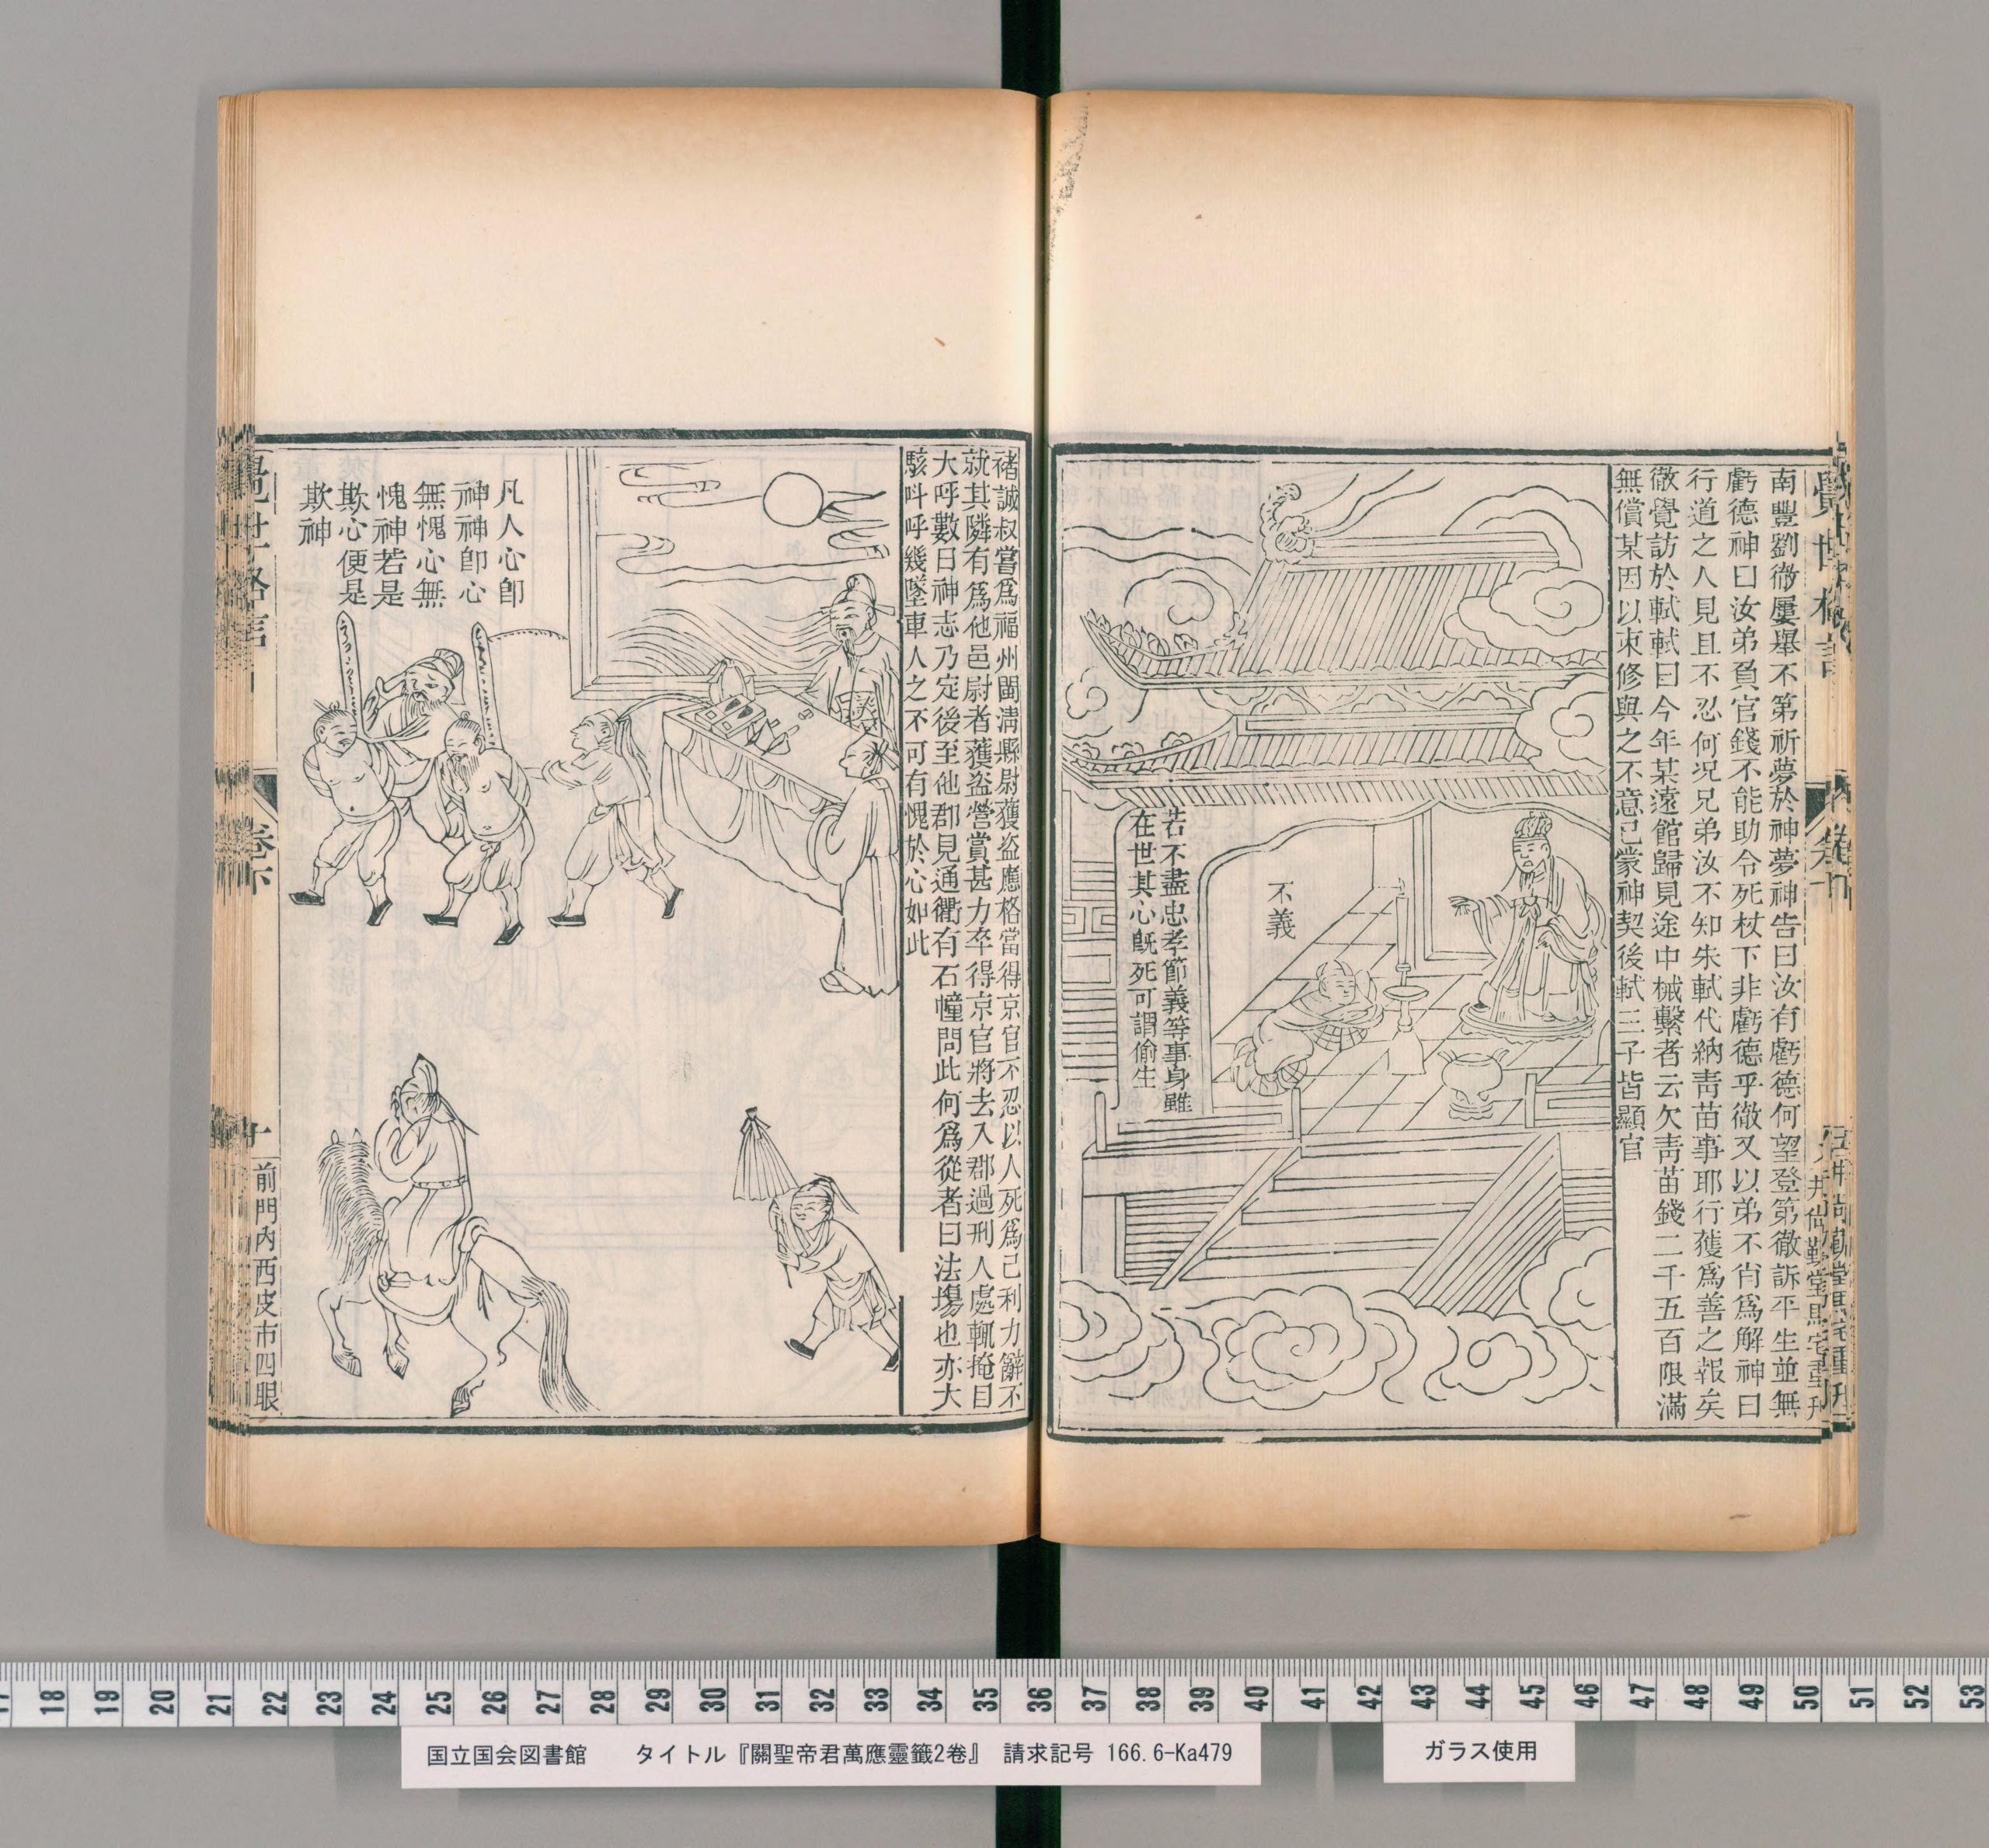 南豐劉徹屢舉不第祈夢於神夢神告曰汝有虧德何望登第徹訴平生並無
虧德神曰汝弟負官錢不能助令死杖下非虧德乎徹又以弟不肖為解神曰
行道之人見且不忍何况兄弟汝不知朱軾代納青苗事耶行獲為善之報矣
徹覺訪於軾軾曰今年某遠館歸見途中械繫者云欠靑苗錢二千五百限滿
無償某因以束修與之不意已蒙神契後軾三子皆顯官
不義
若不盡忠孝節義等事身雖
在世其心旣死可謂偷生
褚誠叔嘗爲福州閩清縣尉獲盜應格當得京官不忍以人死爲己利力辭不
就其隣有爲他邑尉者獲盜營賞甚力卒得京官將去入郡過刑人處輒掩目
大呼數日神志乃定後至他郡見通衢有石幢問此何爲從者曰法塲也亦大
駭呌呼幾墜車人之不可有愧於心如此
凡人心卽
神神卽心
無愧心無
愧神若是
欺心便是
欺神
卷下
十
前門內西皮市四眼
国立国会図書館　タイトル『關聖帝君萬應靈籤2巻』　請求記号 166.6-Ka479
ガラス使用
17 18 19 20 21 22 23 24 25 26 27 28 29 30 31 32 33 34 35 36 37 38 39 40 41 42 43 44 45 46 47 48 49 50 51 52 53